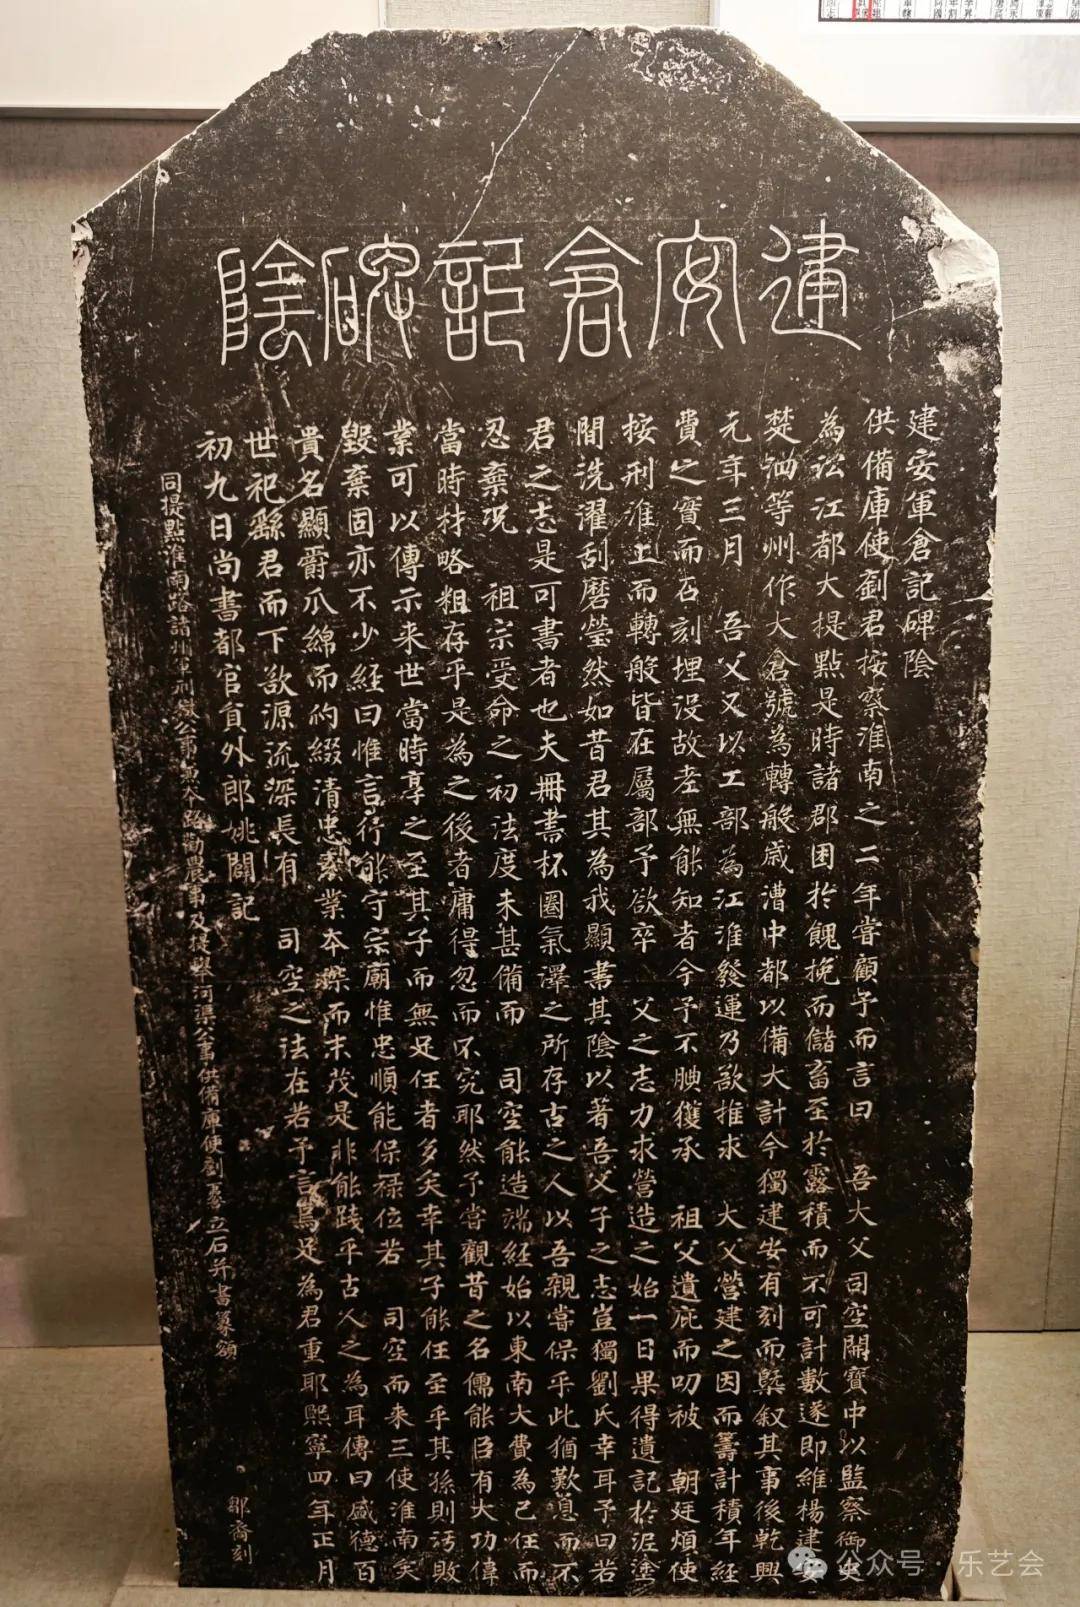 建安倉記碑陰
建安軍倉記碑陰
供備庫使劉君按察淮南之二年嘗顧予而言曰 吾大父司空開寶中以監察御史
為江都大提點是時諸郡困於餽挽而儲畜至於露積而不可計數遂即維楊建安
楚泗等州作大倉號為轉般歲漕中都以備大計今獨建安有刻而槩叙其事後乾興
元年三月 吾父又以工部為江淮發運乃欲推求 大父營建之因而籌計積年經
費之實而石刻埋没故老無能知者今予不腆獲承 祖父遺庇而叨被 朝廷煩使
按刑淮上而轉般皆在屬部予欲卒 父之志力求營造之始一日果得遺記於泥塗
間洗濯刮磨瑩然如昔君其為我顯書其陰以著吾父子之志豈獨劉氏幸耳予曰若
君之志是可書者也夫冊書杯圈氣澤之所存古之人以吾親嘗保乎此猶歎息而不
忍棄況 祖宗受命之初法度未甚備而 司空能造端經始以東南大費為己任而
當時材略粗存乎是為之後者庸得忽而不究耶然予嘗觀昔之名儒能臣有大功偉
業可以傳示來世當時享之至其子而無足任者多矣幸其子能任至乎其孫則污敗
毀棄固亦不少經曰惟言行能守宗廟惟忠順能保禄位若 司空而來三使淮南矣
貴名顯爵爪綿而的綴清忠素業本櫱而末茂是非能踐乎古人之為耳傳曰盛德百
世祀繇君而下欲源流深長有 司空之法在若予言焉足為君重耶熙寧四年正月
初九日尚書都官員外郎姚闢記
同提點淮南路諸州軍刑獄公事兼本路勸農事及提舉河渠公事供備庫使劉立石并書篆額
鄒齊刻
公众号·乐艺会